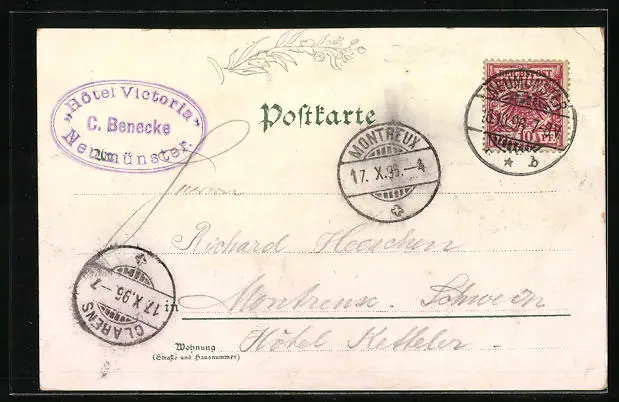 „Hôtel Victoria"
C. Benecke
Neumünster.
Postkarte
REICHSPOST
10
NEUMÜNSTER
96
* b
MONTREUX
17. X. 96. – 4
An
Herrn
Richard Heeschen
in Montreux. Schweiz
Hôtel Ketterer
CLARENS
17. X. 96 – 7
Wohnung
(Straße und Hausnummer)